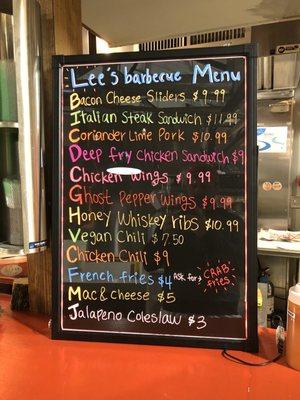 Lee's barbecue Menu
Bacon Cheese Sliders $9.99
Italian Steak Sandwich $11.99
Coriander Lime Pork $10.99
Deep fry Chicken Sandwich $9
Chicken Wings $9.99
Ghost Pepper Wings $9.99
Honey Whiskey ribs $10.99
Vegan Chili $7.50
Chicken Chili $9
French fries $4 Ask for CRAB fries
Mac & cheese $5
Jalapeno Coleslaw $3